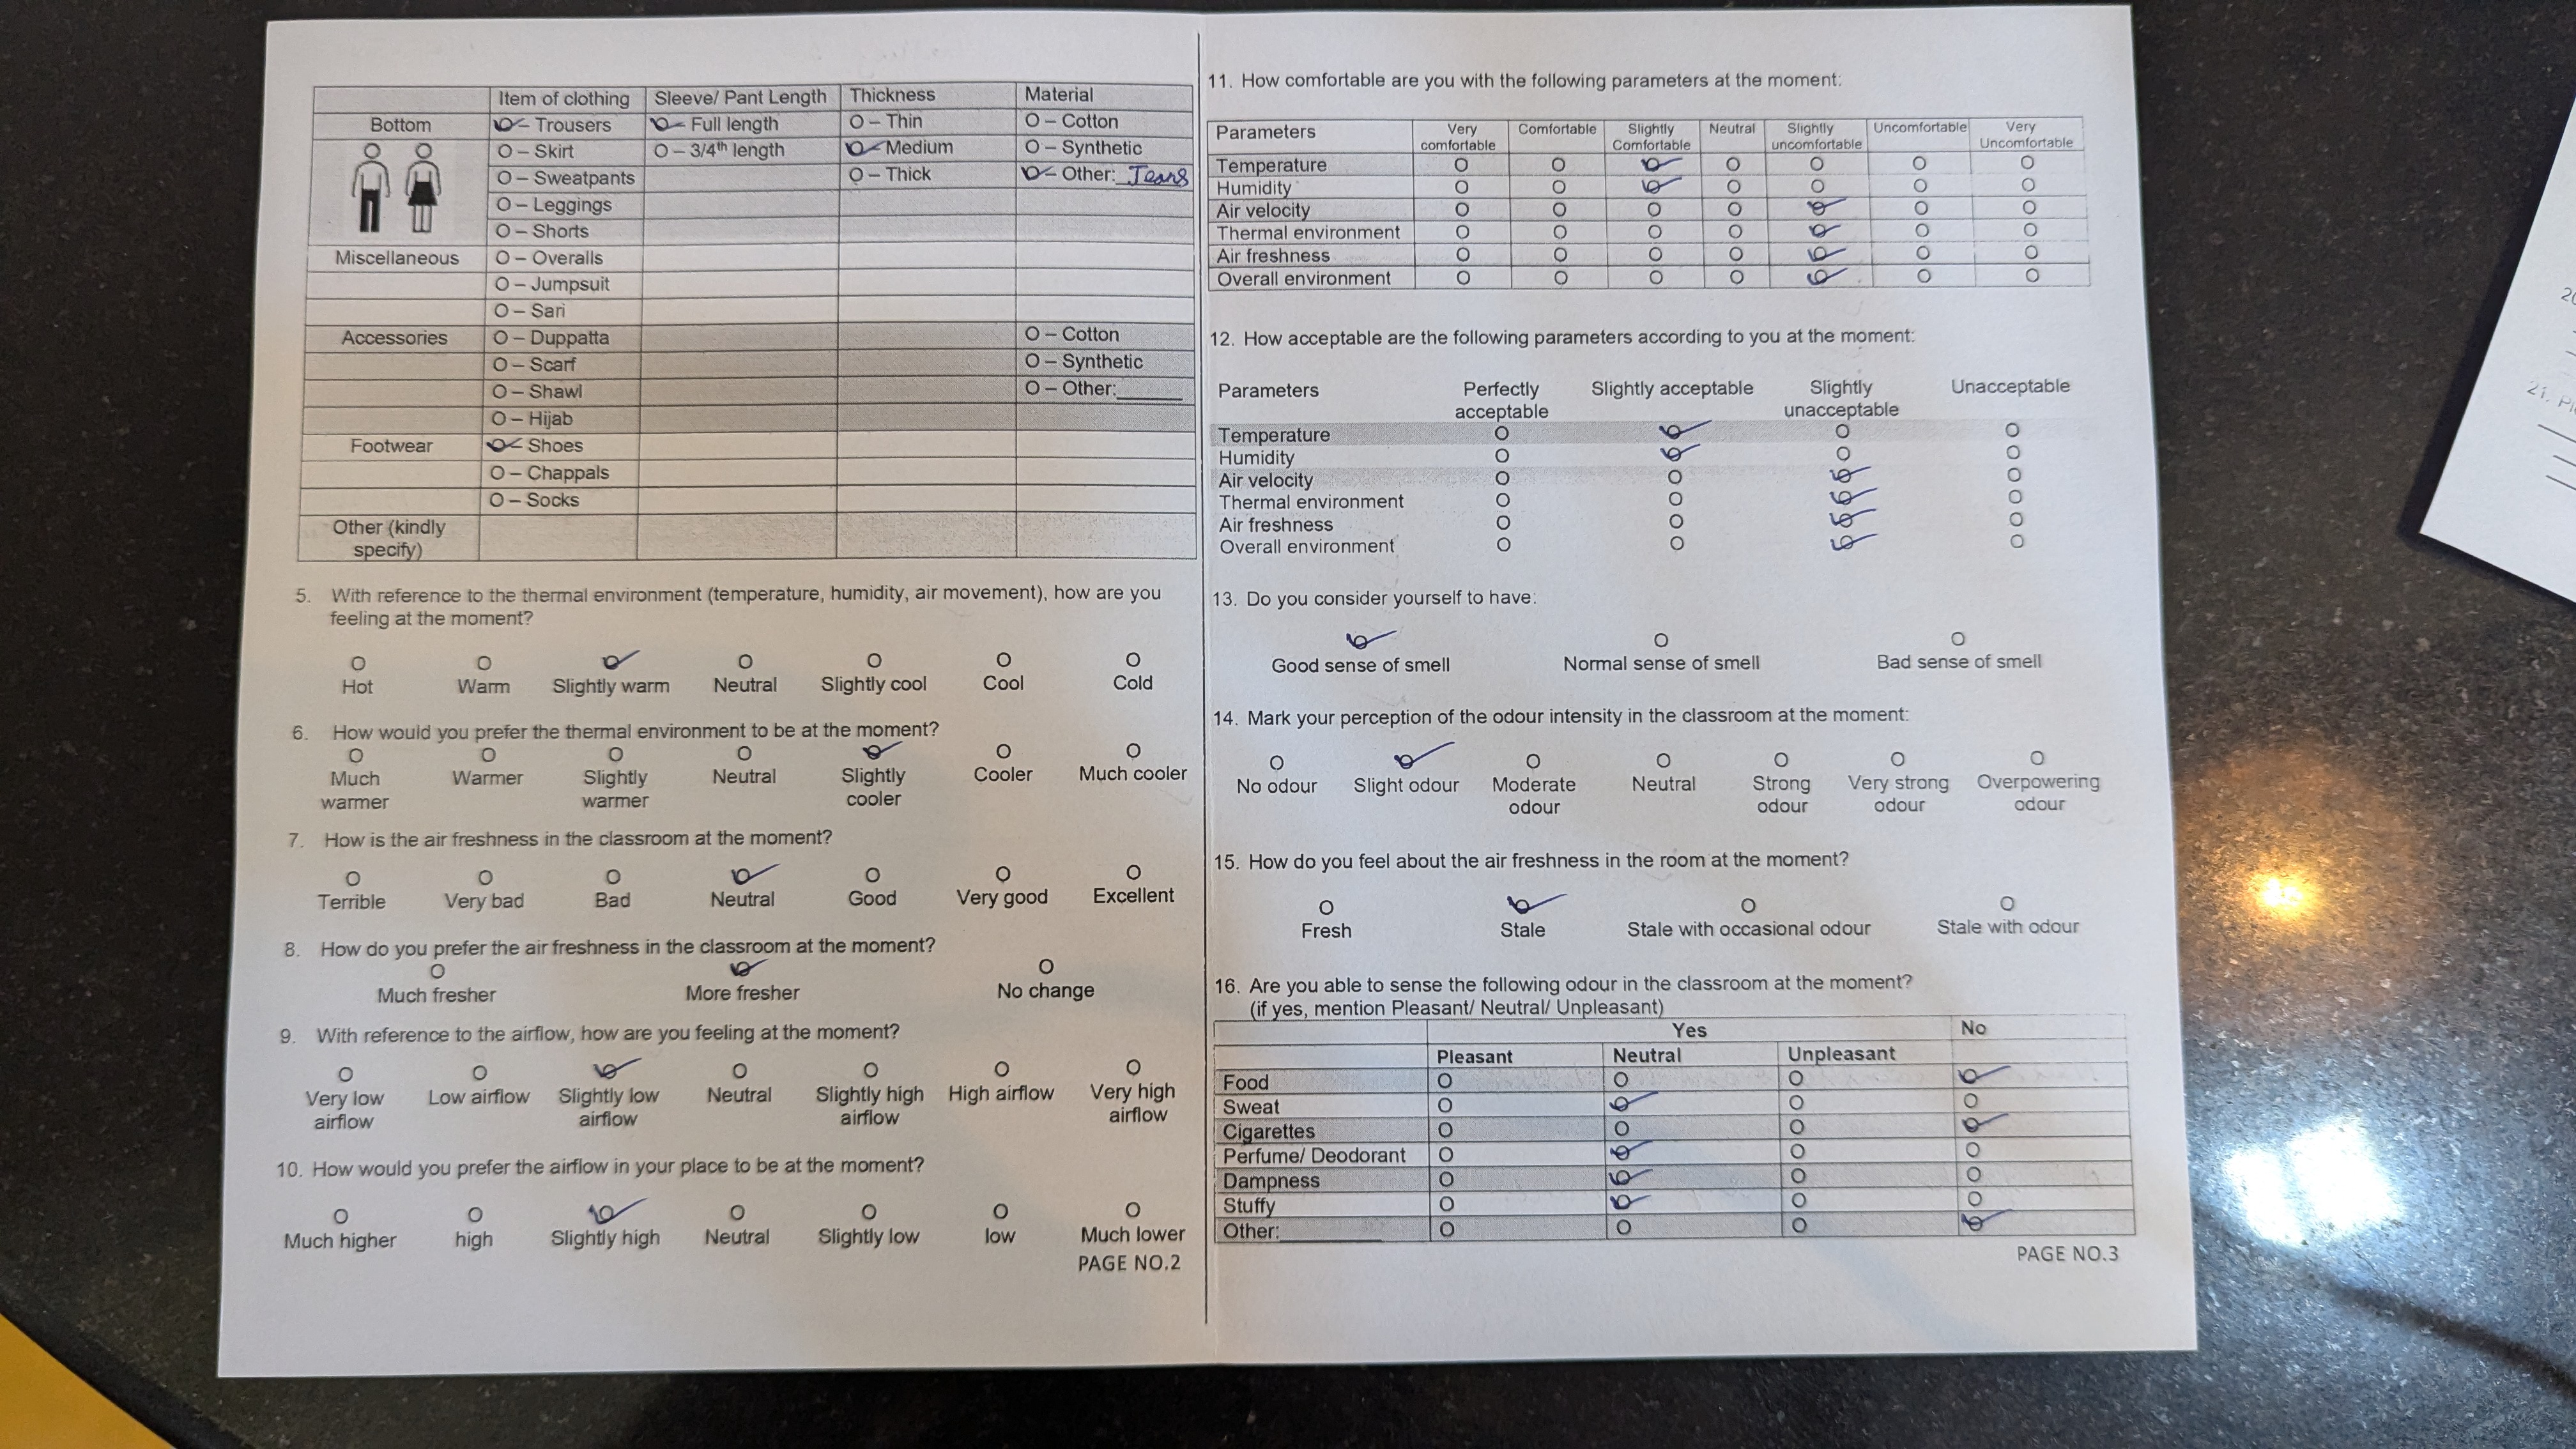 Item of clothing Sleeve/ Pant Length Thickness Material
Bottom O – Trousers O – Full length O – Thin O – Cotton
O – Skirt O – 3/4th length O – Medium O – Synthetic
O – Sweatpants O – Thick O – Other: Jeans
O – Leggings
O – Shorts
Miscellaneous O – Overalls
O – Jumpsuit
O – Sari
Accessories O – Duppatta O – Cotton
O – Scarf O – Synthetic
O – Shawl O – Other:______
O – Hijab
Footwear O – Shoes
O – Chappals
O – Socks
Other (kindly
specify)
5. With reference to the thermal environment (temperature, humidity, air movement), how are you
feeling at the moment?
O O O O O O O
Hot Warm Slightly warm Neutral Slightly cool Cool Cold
6. How would you prefer the thermal environment to be at the moment?
O O O O O O O
Much Warmer Slightly Neutral Slightly Cooler Much cooler
warmer warmer cooler
7. How is the air freshness in the classroom at the moment?
O O O O O O O
Terrible Very bad Bad Neutral Good Very good Excellent
8. How do you prefer the air freshness in the classroom at the moment?
O O O
Much fresher More fresher No change
9. With reference to the airflow, how are you feeling at the moment?
O O O O O O O
Very low Low airflow Slightly low Neutral Slightly high High airflow Very high
airflow airflow airflow airflow
10. How would you prefer the airflow in your place to be at the moment?
O O O O O O O
Much higher high Slightly high Neutral Slightly low low Much lower
PAGE NO.2
11. How comfortable are you with the following parameters at the moment:
Parameters Very Comfortable Slightly Neutral Slightly Uncomfortable Very
comfortable Comfortable uncomfortable Uncomfortable
Temperature O O O O O O O
Humidity O O O O O O O
Air velocity O O O O O O O
Thermal environment O O O O O O O
Air freshness O O O O O O O
Overall environment O O O O O O O
12. How acceptable are the following parameters according to you at the moment:
Parameters Perfectly Slightly acceptable Slightly Unacceptable
acceptable unacceptable
Temperature O O O O
Humidity O O O O
Air velocity O O O O
Thermal environment O O O O
Air freshness O O O O
Overall environment O O O O
13. Do you consider yourself to have:
O O O
Good sense of smell Normal sense of smell Bad sense of smell
14. Mark your perception of the odour intensity in the classroom at the moment:
O O O O O O O
No odour Slight odour Moderate Neutral Strong Very strong Overpowering
odour odour odour odour
15. How do you feel about the air freshness in the room at the moment?
O O O O
Fresh Stale Stale with occasional odour Stale with odour
16. Are you able to sense the following odour in the classroom at the moment?
(if yes, mention Pleasant/ Neutral/ Unpleasant)
Yes No
Pleasant Neutral Unpleasant
Food O O O O
Sweat O O O O
Cigarettes O O O O
Perfume/ Deodorant O O O O
Dampness O O O O
Stuffy O O O O
Other:__________ O O O O
PAGE NO.3
21.